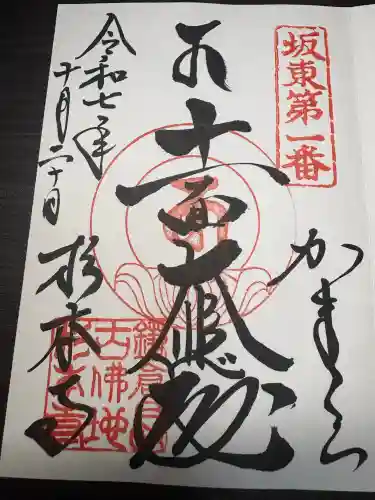 坂東第一番
かまくら
十一面大悲殿
令和七年
十月二十日
杉本寺
鎌倉最
古佛地
杉本寺